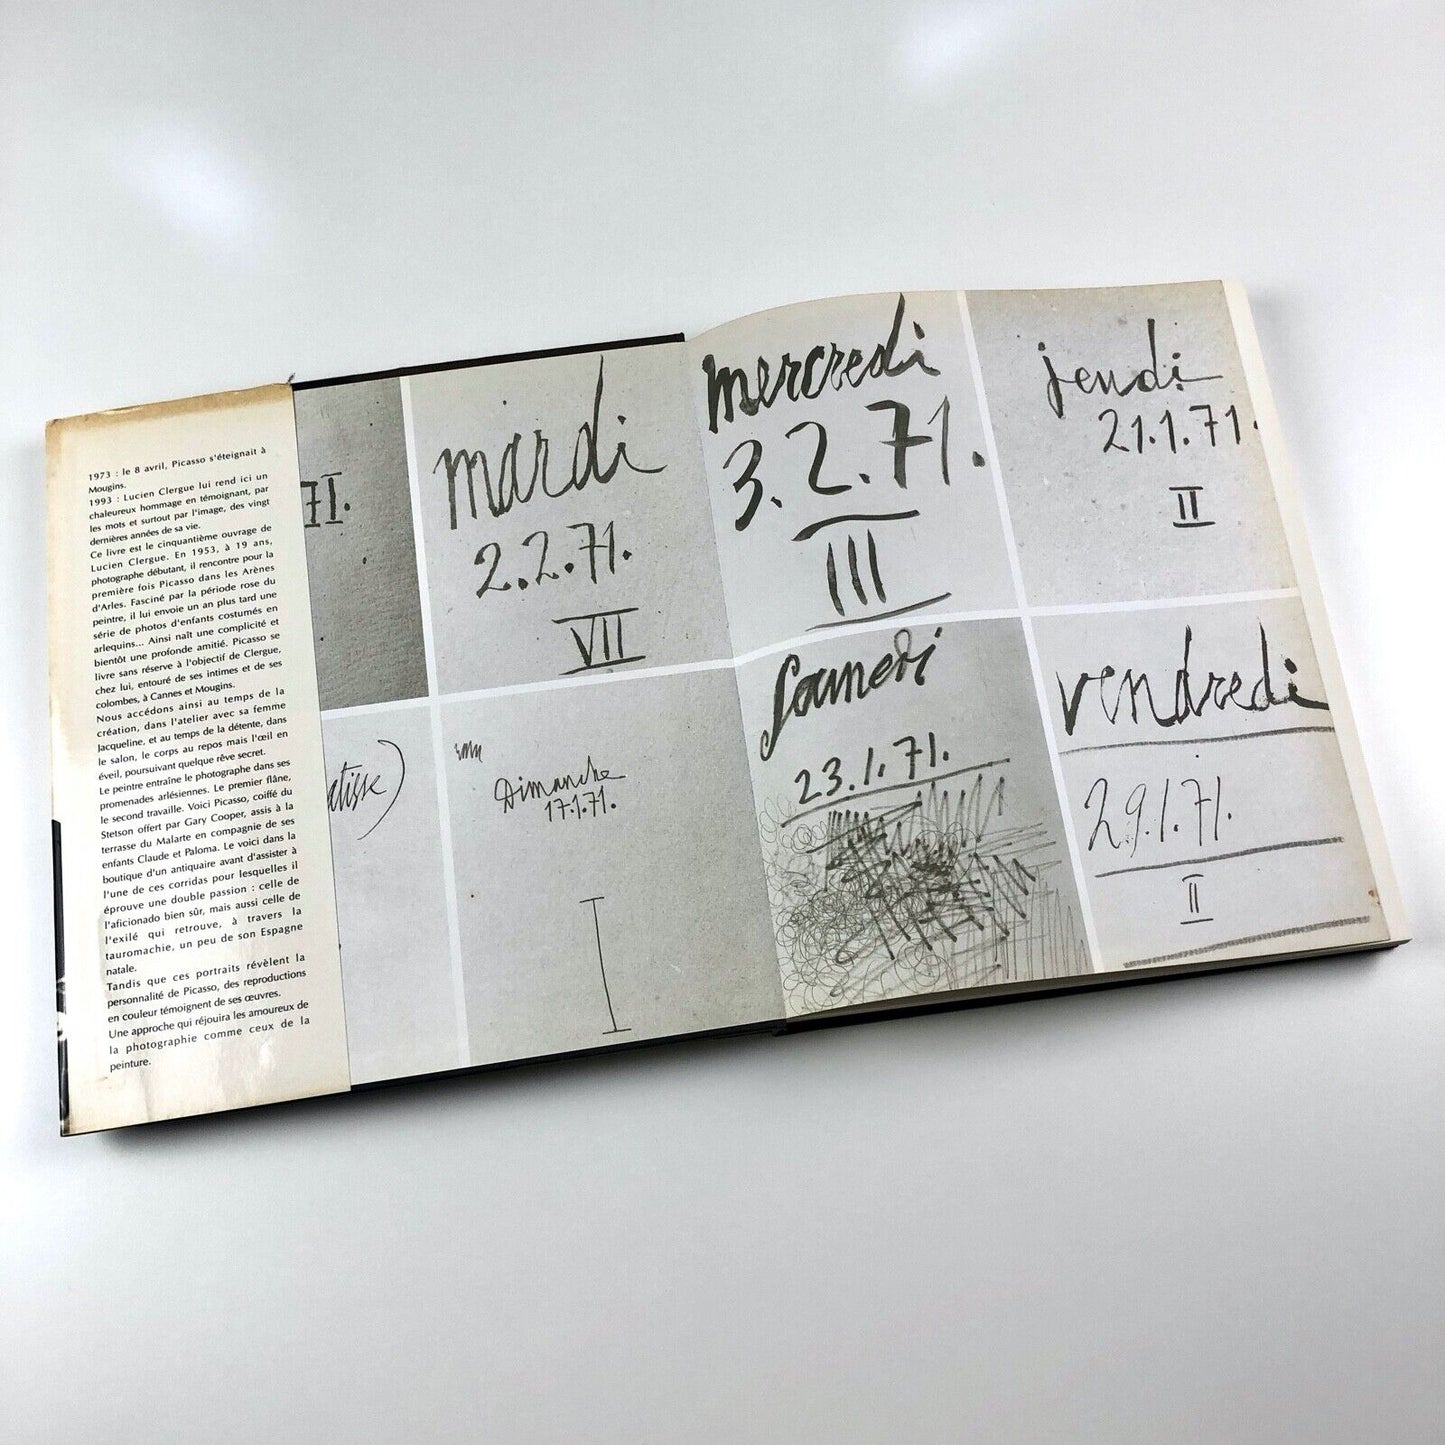 1973 : le 8 avril, Picasso s'éteignait à
Mougins.
1993 : Lucien Clergue lui rend ici un
chaleureux hommage en témoignant, par
les mots et surtout par l'image, des vingt
dernières années de sa vie.
Ce livre est le cinquantième ouvrage de
Lucien Clergue. En 1953, à 19 ans,
photographe débutant, il rencontre pour la
première fois Picasso dans les Arènes
d'Arles. Fasciné par la période rose du
peintre, il lui envoie un an plus tard une
série de photos d'enfants costumés en
arlequins... Ainsi naît une complicité et
bientôt une profonde amitié. Picasso se
livre sans réserve à l'objectif de Clergue,
chez lui, entouré de ses intimes et de ses
colombes, à Cannes et Mougins.
Nous accédons ainsi au temps de la
création, dans l'atelier avec sa femme
Jacqueline, et au temps de la détente, dans
le salon, le corps au repos mais l'œil en
éveil, poursuivant quelque rêve secret.
Le peintre entraîne le photographe dans ses
promenades arlésiennes. Le premier flâne,
le second travaille. Voici Picasso, coiffé du
Stetson offert par Gary Cooper, assis à la
terrasse du Malarte en compagnie de ses
enfants Claude et Paloma. Le voici dans la
boutique d'un antiquaire avant d'assister à
l'une de ces corridas pour lesquelles il
éprouve une double passion : celle de
l'aficionado bien sûr, mais aussi celle de
l'exilé qui retrouve, à travers la
tauromachie, un peu de son Espagne
natale.
Tandis que ces portraits révèlent la
personnalité de Picasso, des reproductions
en couleur témoignent de ses œuvres.
Une approche qui réjouira les amoureux de
la photographie comme ceux de la
peinture.
71.
mardi
2.2.71.
VII
atisse)
Dimanche
17.1.71.
I
mercredi
3.2.71.
III
jeudi
21.1.71.
II
Samedi
23.1.71.
vendredi
29.1.71.
II